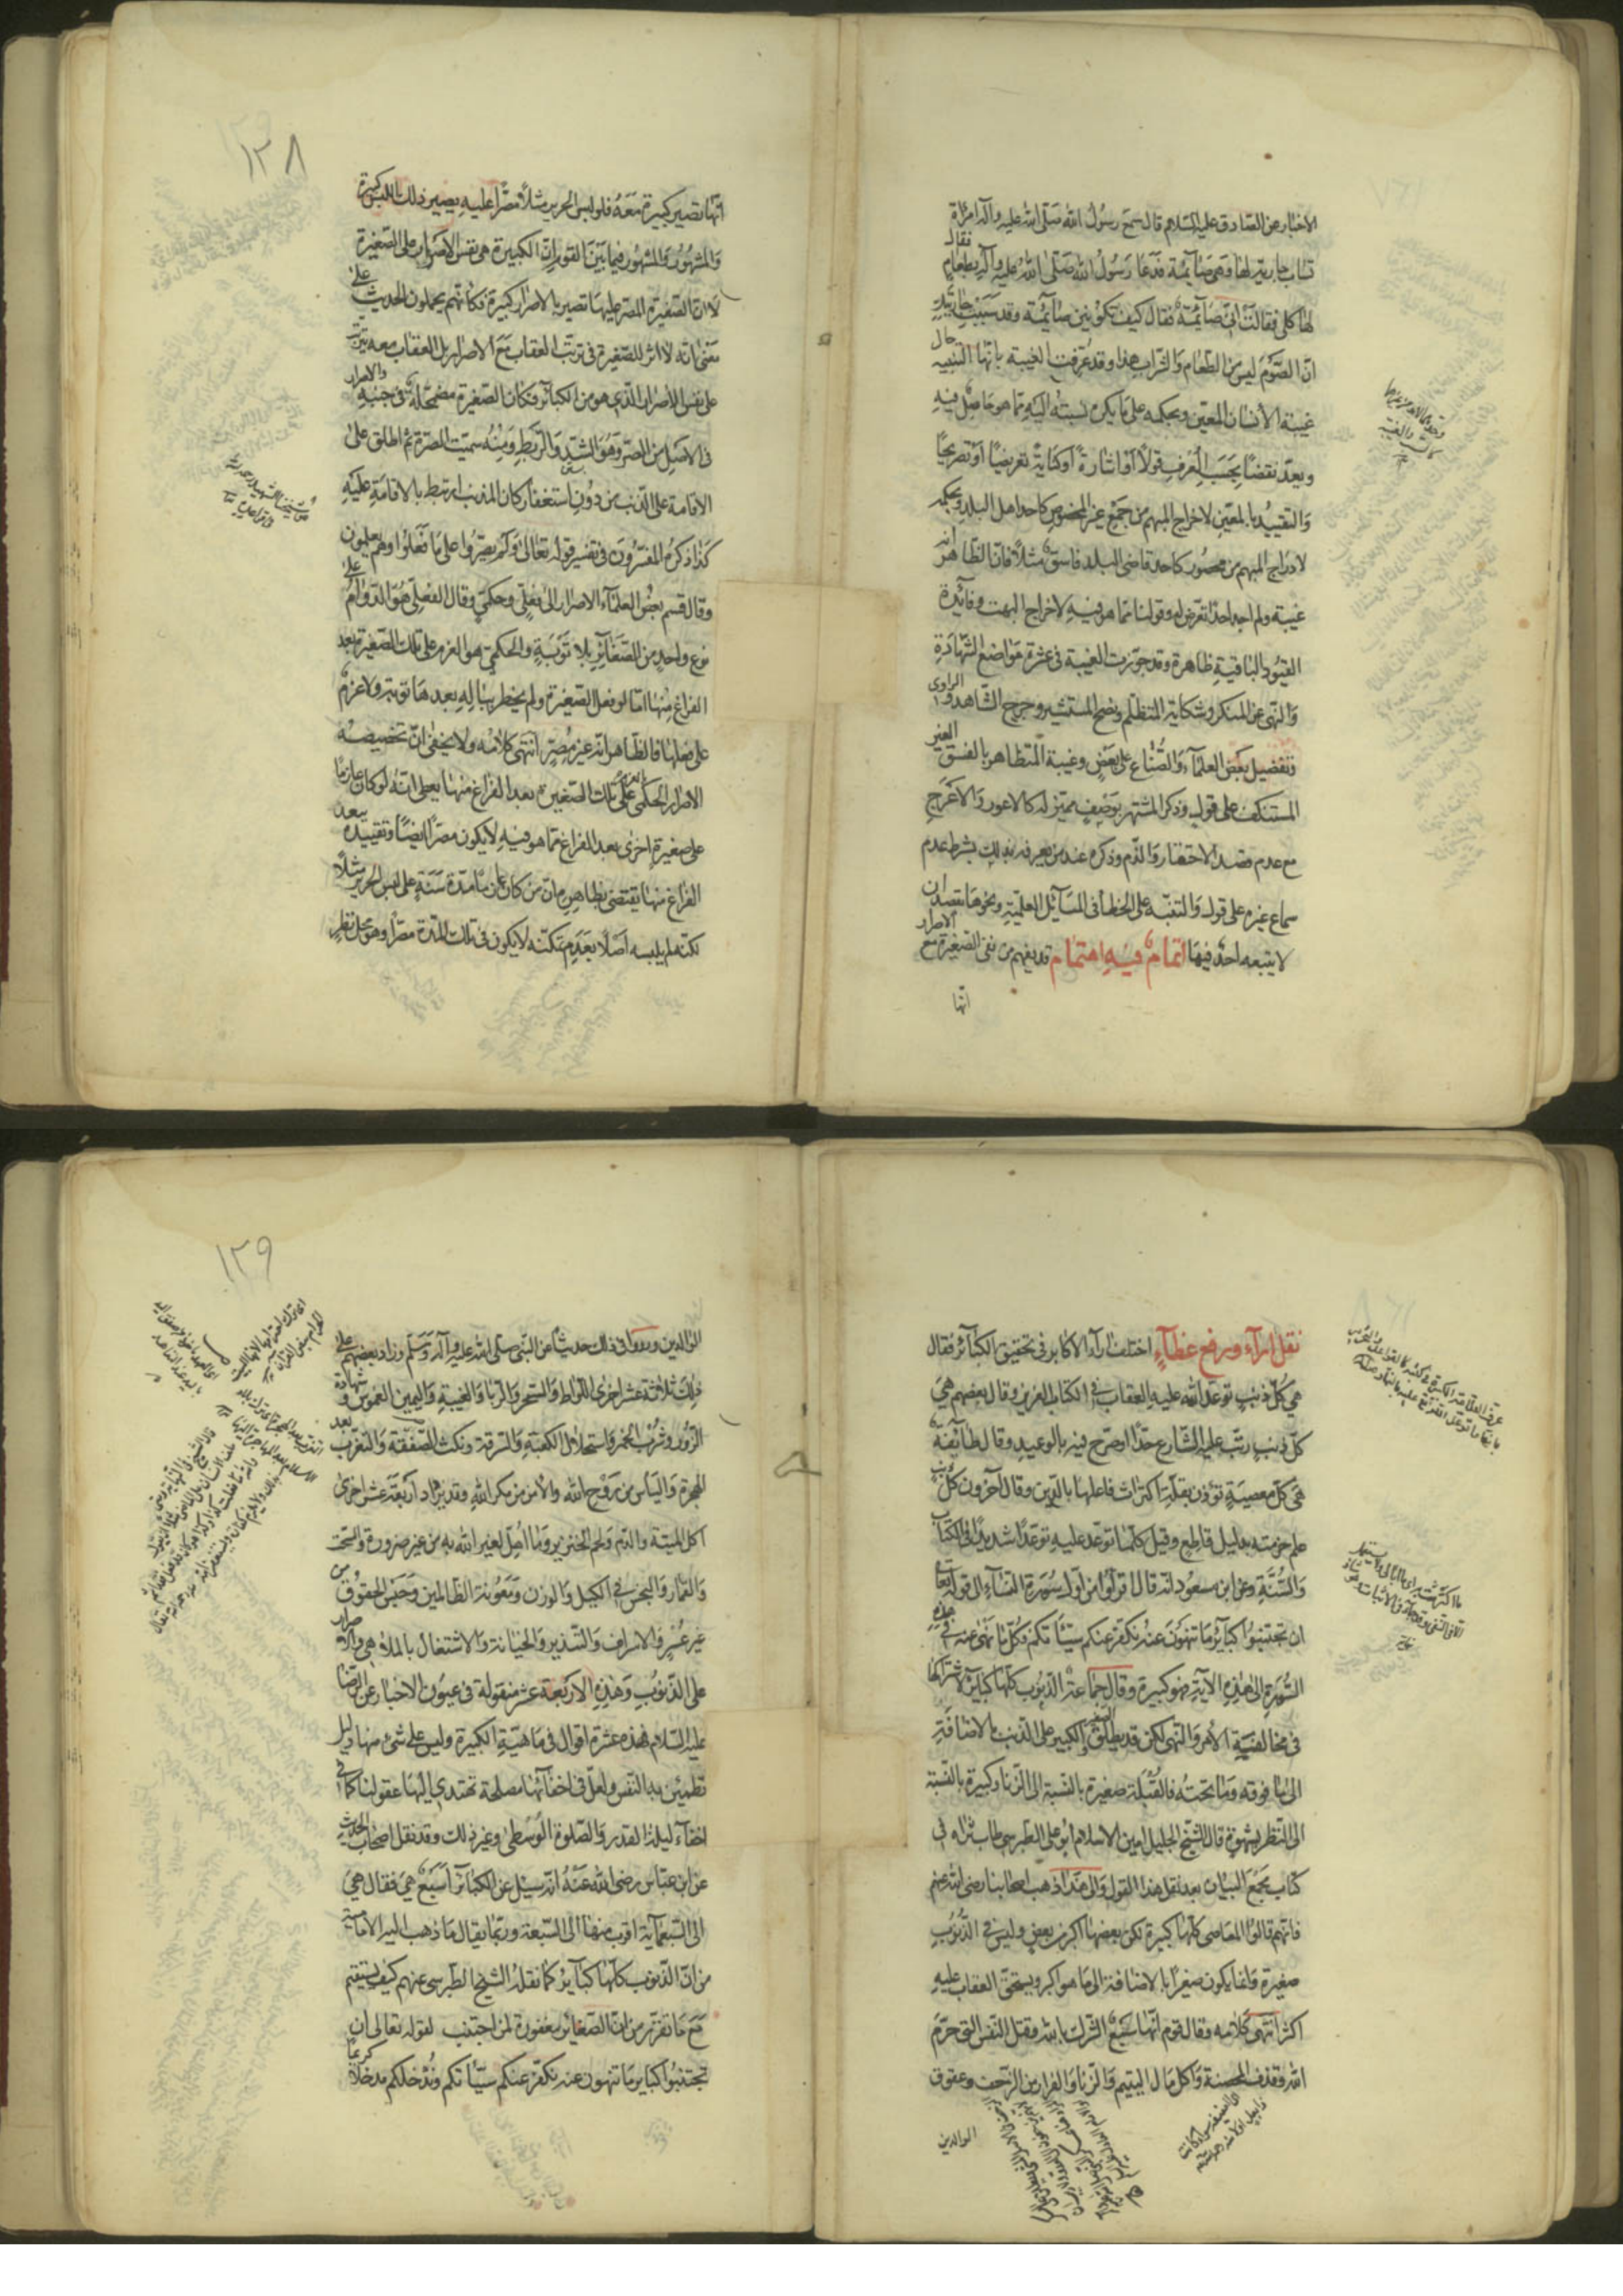 الاخبار عن الصادق عليه السلام قال سمع رسول الله صلى الله عليه وآله امرأة
تساب جارية لها وهي صائمة فدعا رسول الله صلى الله عليه وآله بطعام فقال
لها كلي فقالت اني صائمة فقال كيف تكونين صائمة وقد سببت جاريتك
ان الصوم ليس من الطعام والشراب هذا وقد عرفت الغيبة بانها التنبيه حال
غيبة الانسان المعين وبحكمه على ما يكره نسبته اليه مما هو حاصل فيه
ويعد نقصا بحسب العرف قولا أو اشارة أو كناية تعريضا أو تصريحا
والتقييد بالمعين لاخراج المبهم من جمع غير المحصور كاحد اهل البلد وبحكمه
لادراج المبهم من محصور كاحد قاضي البلد فاسق مثلا فان الظاهر انه
غيبة ولم اجد احدا تعرض له وقولنا مما هو فيه لاخراج البهت وفائدة
القيود الباقية ظاهرة وقد جوزت الغيبة في عشرة مواضع الشهادة
والنهي عن المنكر وشكاية المتظلم ونصح المستشير وجرح الشاهد والراوي
وتفضيل بعض العلماء والصناع على بعض وغيبة المتظاهر بالفسق الغير
المستنكف على قول وذكر المشتهر بوصف مميز له كالاعور والاعرج
مع عدم قصد الاحتقار والذم وذكره عند من يعرفه بذلك بشرط عدم
سماع غيره على قول والتنبيه على الخطأ في المسائل العلمية ونحوها بقصد ان
لا يتبعه احد فيها اتمام فيه اهتمام قد يفهم من نفي الصغيرة مع الاصرار
انها
١٢٨
انها تصير كبيرة معه فلو لبس الحرير مثلا مصرا عليه يصير ذلك اللبس كبيرة
والمشهور فيما بين القوم ان الكبيرة هي نفس الاصرار على الصغيرة
لا ان الصغيرة المصر عليها تصير بالاصرار كبيرة فكأنهم يحملون الحديث على
معنى انه لا اثر للصغيرة في ترتب العقاب مع الاصرار بل العقاب معه يترتب
على نفس الاصرار الذي هو من الكبائر فكان الصغيرة مضمحلة في جنبه والاصرار
في الاصل من الصر وهو الشد والربط ومنه سميت الصرة ثم اطلق على
الاقامة على الذنب من دون استغفار كان المذنب ارتبط بالاقامة عليه
كذا ذكره المفسرون في تفسير قوله تعالى ولم يصروا على ما فعلوا وهم يعلمون
وقال قسم بعض العلماء الاصرار الى فعلي وحكمي وقال الفعلي هو الدوام على
نوع واحد من الصغائر بلا توبة والحكمي هو العزم على تلك الصغيرة بعد
الفراغ منها اما لو فعل الصغيرة ولم يخطر بباله بعدها توبة ولا عزم
على فعلها فالظاهر انه غير مصر انتهى كلامه ولا يخفى ان تخصيصه
الاصرار الحكمي بالعزم على تلك الصغيرة بعد الفراغ منها يعطي انه لو كان عازما
على صغيرة اخرى بعد الفراغ مما هو فيه لا يكون مصرا ايضا وتقييده ببعد
الفراغ منها يقتضي بظاهره ان من كان عازما مدة سنة على لبس الحرير مثلا
لكنه لم يلبسه اصلا بعدم تمكنه لا يكون في تلك المدة مصرا وهو محل نظر
نقل اراء ورفع غطاء اختلف آراء الاكابر في تحقيق الكبائر فقال
هي كل ذنب توعد الله عليه العقاب في الكتاب العزيز وقال بعضهم هي
كل ذنب رتب عليه الشارع حدا أو صرح فيه بالوعيد وقال طائفة
هي كل معصية تؤذن بقلة اكتراث فاعلها بالدين وقال آخرون كل ذنب
علم حرمته بدليل قاطع وقيل كلما توعد عليه توعدا شديدا في الكتاب
والسنة وعن ابن مسعود انه قال اقرأوا من اول سورة النساء الى قوله تعالى
ان تجتنبوا كبائر ما تنهون عنه نكفر عنكم سيئاتكم فكل ما نهى عنه في هذه
السورة الى هذه الآية فهو كبيرة وقال جماعة الذنوب كلها كبائر لاشتراكها
في مخالفة الأمر والنهي لكن قد يطلق الصغير والكبير على الذنب بالاضافة
الى ما فوقه وما تحته فالقبلة صغيرة بالنسبة الى الزنا وكبيرة بالنسبة
الى النظر بشهوة قال الشيخ الجليل امين الاسلام ابو علي الطبرسي طاب ثراه في
كتاب مجمع البيان بعد نقل هذا القول والى هذا ذهب اصحابنا رضي الله عنهم
فانهم قالوا المعاصي كلها كبيرة لكن بعضها اكبر من بعض وليس في الذنوب
صغيرة وانما يكون صغيرا بالاضافة الى ما هو اكبر ويستحق العقاب عليه
اكثر انتهى كلامه وقال قوم انها سبع الشرك بالله وقتل النفس التي حرم
الله وقذف المحصنة واكل مال اليتيم والزنا والفرار من الزحف وعقوق
الوالدين
١٢٩
الوالدين ورووا في ذلك حديثا عن النبي صلى الله عليه وآله وسلم وزاد بعضهم على
ذلك ثلاثة عشر اخرى اللواط والسحر والربا والغيبة واليمين الغموس وشهادة
الزور وشرب الخمر واستحلال الكعبة والسرقة ونكث الصفقة والتعرب بعد
الهجرة واليأس من روح الله والأمن من مكر الله وقد يزاد أربعة عشر اخرى
اكل الميتة والدم ولحم الخنزير وما اهل لغير الله به من غير ضرورة والسحت
والقمار والبخس في الكيل والوزن ومعونة الظالمين وحبس الحقوق من
غير عسر والاسراف والتبذير والخيانة والاشتغال بالملاهي والاصرار
على الذنوب وهذه الاربعة عشر منقولة في عيون الاخبار عن الرضا
عليه السلام فهذه عشرة اقوال في ماهية الكبيرة وليس على شيء منها دليل
تطمئن به النفس ولعل في اخفائها مصلحة لا تهتدي اليها عقولنا كما في
اخفاء ليلة القدر والصلوة الوسطى وغير ذلك وقد نقل اصحاب الحديث
عن ابن عباس رضي الله عنه انه سئل عن الكبائر أسبع هي فقال هي
الى السبعمائة اقرب منها الى السبعة وربما يقال ما ذهب اليه الامامية
من ان الذنوب كلها كبائر كما نقله الشيخ الطبرسي عنهم كيف يستقيم
مع ما تقرر من ان الصغائر مغفورة لمن اجتنب لقوله تعالى ان
تجتنبوا كبائر ما تنهون عنه نكفر عنكم سيئاتكم وندخلكم مدخلا كريما